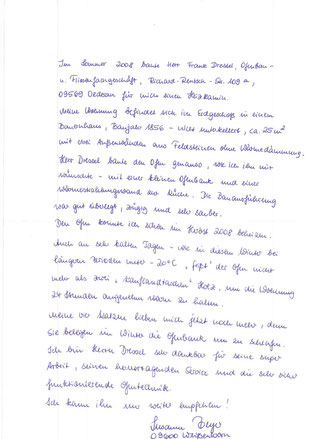 Im Sommer 2008 baute Herr Frank Drossel, Ofenbau-
u. Fliesenfachgeschäft, Richard-Rentsch-Str. 109 a,
09569 Oederan für mich einen Heizkamin.
Meine Wohnung befindet sich im Erdgeschoß in einem
Bauernhaus, Baujahr 1856 – nicht unterkellert, ca. 25 m²
mit drei Außenwänden aus Feldsteinen ohne Wärmedämmung.
Herr Drossel baute den Ofen genauso, wie ich ihn mir
wünschte – mit einer kleinen Ofenbank und einer
zur Küche. Die Bauausführung
war gut überlegt, zügig und sehr sauber.
Den Ofen konnte ich schon im Herbst 2008 beheizen.
Auch an sehr kalten Tagen – wie in diesem Winter bei
längeren Perioden unter -20°C, "frißt" der Ofen nicht
mehr als zwei "Kauflandtaschen" Holz, um die Wohnung
24 Stunden angenehm warm zu halten.
Meine vier Katzen lieben mich jetzt noch mehr, denn
sie belegen im Winter die Ofenbank nun zu Schlafen.
Ich bin Herrn Drossel sehr dankbar für seine super
Arbeit, seinen hervorragenden Service und die sehr sicher
funktionierende Ofentechnik.
Ich kann ihn nur weiter empfehlen!
Susanne
09600 Weißenborn